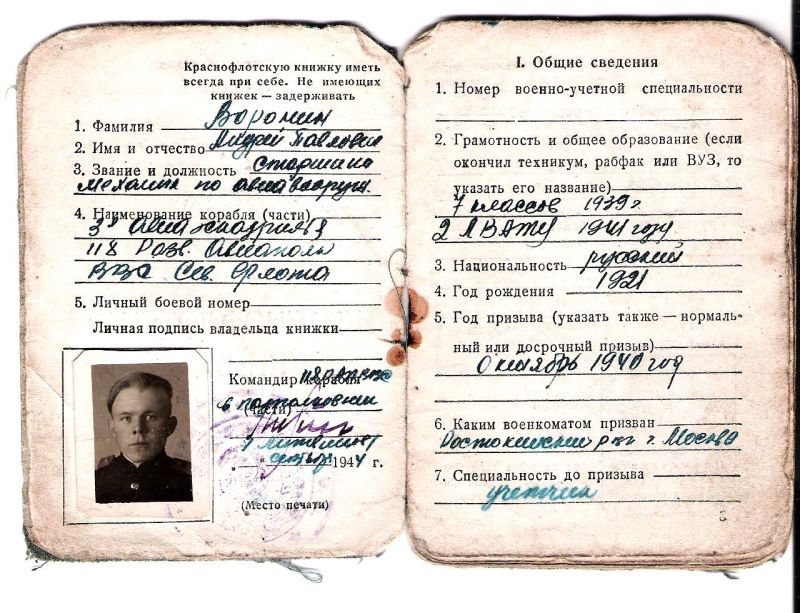 Краснофлотскую книжку иметь
всегда при себе. Не имеющих
книжек — задерживать
1. Фамилия Воронин
2. Имя и отчество Андрей Павлович
3. Звание и должность Старшина
Механик по авиавооруж.
4. Наименование корабля (части)
3я Авиаэскадрилья
118 Разв. Авиаполк
ВВС Сев. Флота
5. Личный боевой номер
Личная подпись владельца книжки
Командир корабля 118
(части) подполковник
1944 г.
(Место печати)
I. Общие сведения
1. Номер военно-учетной специальности
2. Грамотность и общее образование (если
окончил техникум, рабфак или ВУЗ, то
указать его название)
7 классов 1939 г
2 ЛВАТУ 1941 году
3. Национальность русский
4. Год рождения 1921
5. Год призыва (указать также — нормаль-
ный или досрочный призыв)
Октябрь 1940 год
6. Каким военкоматом призван
Ростокинский рвк г. Москва
7. Специальность до призыва
учетчик
3